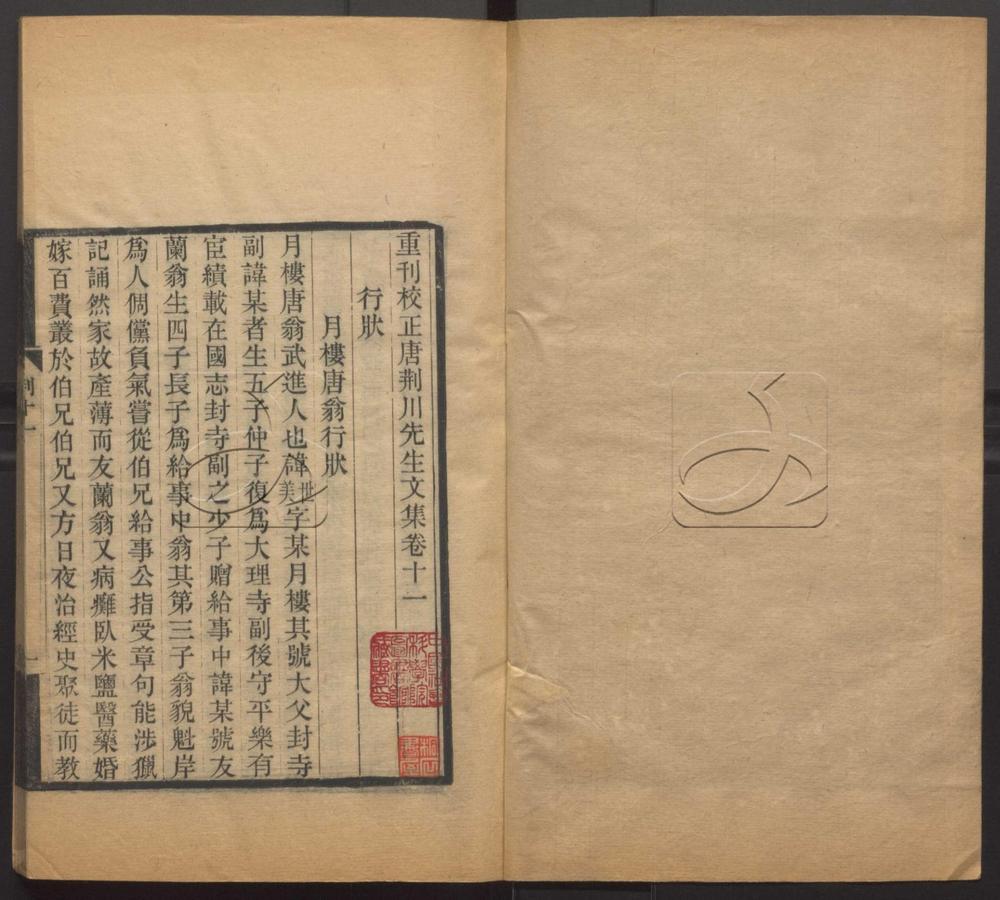 重刊校正唐荆川先生文集卷十一
行狀
月樓唐翁行狀
月樓唐翁武進人也諱世美字某月樓其號大父封寺
副諱某者生五子仲子復爲大理寺副後守平樂有
宦績載在國志封寺副之少子贈給事中諱某號友
蘭翁生四子長子爲給事中翁其第三子翁貌魁岸
爲人倜儻負氣嘗從伯兄給事公指受章句能涉獵
記誦然家故產薄而友蘭翁又病癱臥米鹽醫藥婚
嫁百費叢於伯兄伯兄又方日夜治經史聚徒而教